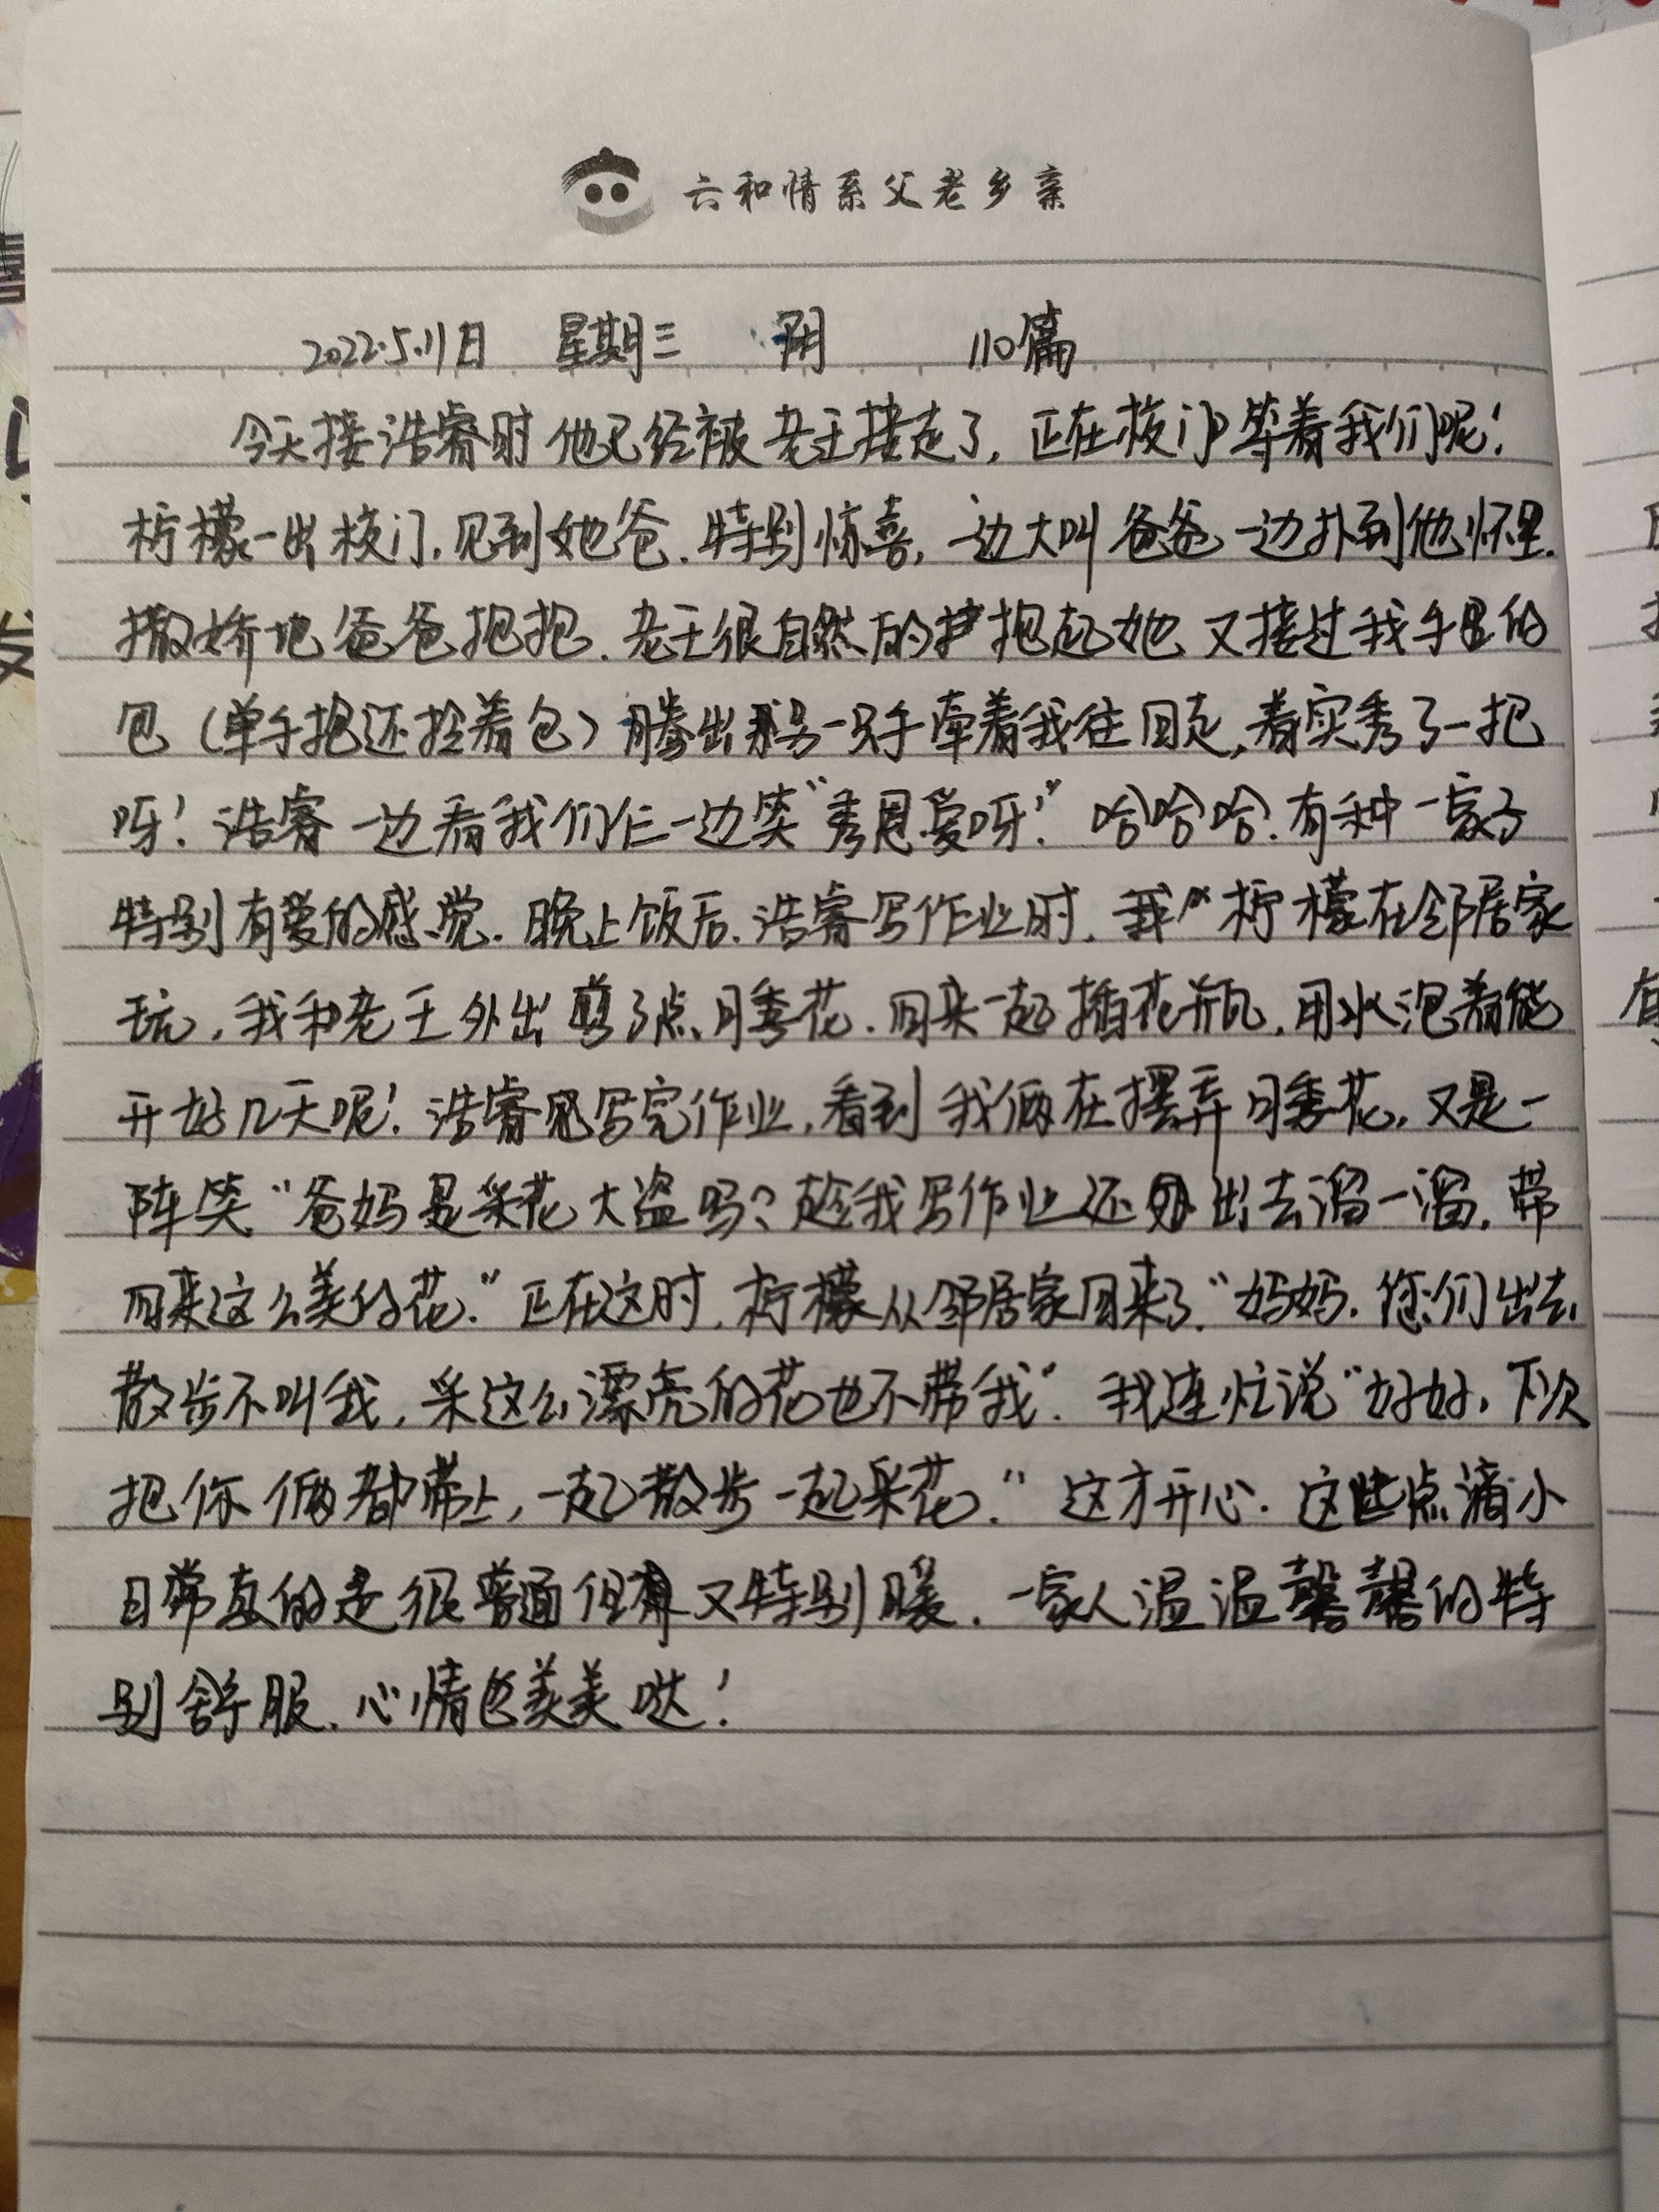 六和情系父老乡亲
2022.5.11日 星期三 阴 110篇
今天接浩睿时他已经被老王接走了，正在校门口等着我们呢！
柠檬一出校门，见到她爸，特别惊喜，一边大叫爸爸一边扑到他怀里，
撒娇地爸爸抱抱。老王很自然的抱起她，又接过我手里的
包（单手抱还拎着包）腾出另一只手牵着我往回走，着实秀了一把
呀！浩睿一边看我们仨一边笑“秀恩爱呀！”哈哈哈，有种一家子
特别有爱的感觉。晚上饭后，浩睿写作业时，柠檬在邻居家
玩，我和老王外出剪了点月季花，回来一起插花瓶，用水泡着能
开好几天呢！浩睿写完作业，看到我俩在摆弄月季花，又是一
阵笑“爸妈是采花大盗吗？趁我写作业还出去溜一溜，带
回来这么美的花。”正在这时，柠檬从邻居家回来了“妈妈，您们出去
散步不叫我，采这么漂亮的花也不带我”。我连忙说“好好，下次
把你俩都带上，一起散步一起采花。”这才开心。这些点滴小
日常真的是很普通但又特别暖，一家人温温馨馨的特
别舒服，心情也美美哒！